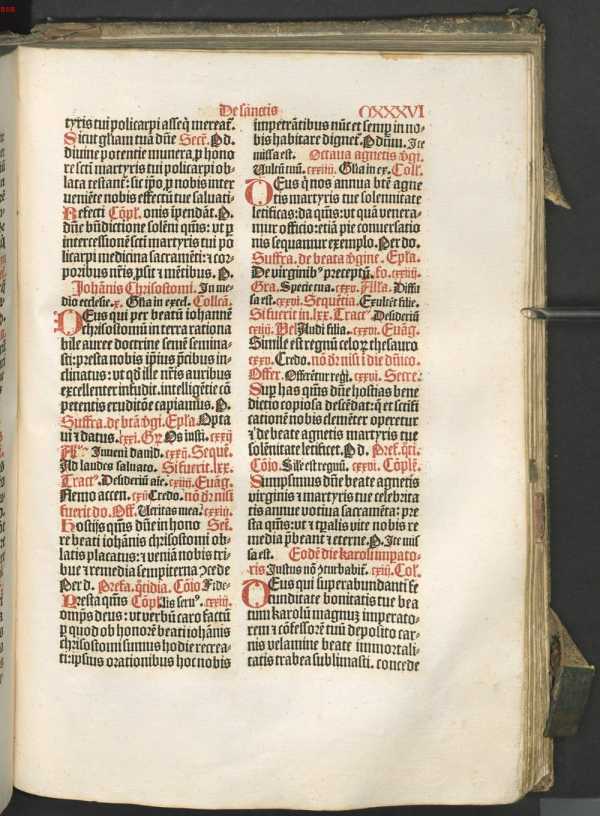 De sanctis
CXXXVI
tyris tui policarpi asseq̄ mereat᷑.
Sicut gl̄iam tuā dn̄e Secr̄. P̄d.
divine potentie munera, p hono
re scti martyris tui policarpi ob-
lata testant᷑: sic ip̄o p nobis inter
veniēte nobis effectū tue saluati-
Refecti Cōpl. onis īpendāt. P.
dn̄e bn̄dictione solēni qm̄s: vt p
intercessionē scti martyris tui po
licarpi medicina sacramēti: ⁊ cor-
poribus nr̄is ꝓsit ⁊ mētibus. P.
Johānis Chrisostomi. In me-
dio ecclesie. x. Gl̄ia in excel. Collcā.
DEus qui per beatū iohannē
chrisostomū in terra rationa
bile auree doctrine semē semina-
sti: presta nobis ip̄ius p̄cibus in-
clinatus: vt qd ille nr̄is auribus
excellenter infudit. intelligētie cō
petentis eruditōe capiamus. P.
Suffra. de btā v̄gi. Epl̄a. Opta
ui ⁊ datus. lxxi. Gr̄. Os iusti. cxxij
All'. Inueni dauid. cxxij. Seque.
Ad laudes saluato. Si fuerit. lxx.
Tract'. Desideriū aīe. cxiiij. Euāg.
Nemo accen. cxij Credo. nō dr̄ nisi
fuerit do. Off. Ueritas mea. cxxiij.
Hostijs qm̄s dn̄e in hono Secr̄.
re beati iohānis chrisostomi ob-
latis placatus: ⁊ veniā nobis tri-
bue ⁊ remedia sempiterna ꝯcede
Per d. Prefa. q̄tidia. Cōio Fide-
Presta qm̄s Cōpl. lis seru'. cxxiij.
omps deus: vt verbū caro factū
p quod ob honorē beati iohānis
chrisostomi sumus hodie recrea-
ti: ipsius orationibus hoc nobis
impetrātibus nūc et semp in no-
bis habitare dignet᷑. P̄ dn̄m. Ite
missa est. Octaua agnetis v̄gi.
Uultū tuū. cxxiiij. Gl̄ia in ex. Coll.
DEus q̄ nos annua btē agne
tis martyris tue solennitate
letificas: da qm̄s: vt quā venera-
mur officio: etiā pie conuersatio
nis sequamur exemplo. Per do.
Suffra. de beata v̄gine. Epl̄a.
De virginib' preceptū. fo. cxxiiij.
Gra. Specie tua. cxxv. All̄a. Diffu
sa est. cxxvi. Sequētia. Exultēt filie.
Si fuerit in. lxx. Tract' Desideriū
cxiiij. Vel Audi filia. cxxvi. Euāg.
Simile est regnū celoꝝ thesauro
cxxv. Credo. nō dr̄ nisi ī die dn̄ico.
Offer. Offerētur regi. cxxvi. Secre.
Suꝑ has qm̄s dn̄e hostias bene
dictio copiosa descēdat: q̄ et scīfi
cationē nobis clemēter operetur
⁊ de beate agnetis martyris tue
solēnitate letificet. P̄ d. Pref. q̄ti.
Cōio. Sīle est regnū. cxxvi. Cōplē.
Sumpsimus dn̄e beate agnetis
virginis ⁊ martyris tue celebrita
tis annue votiua sacramēta: pre
sta qm̄s: vt ⁊ tꝑalis vite nobis re
media p̄beant ⁊ eterne. P. Ite mis
sa est. Eodē die karoli impato-
ris Justus nō ꝯturbabit᷑. cxiij. Col.
DEus qui superabundanti fe
cunditate bonitatis tue bea
tum karolū magnuꝫ imperato-
rem ⁊ cōfessorē tuū deposito car-
nis velamine beate immortali-
tatis trabea sublimasti. concede